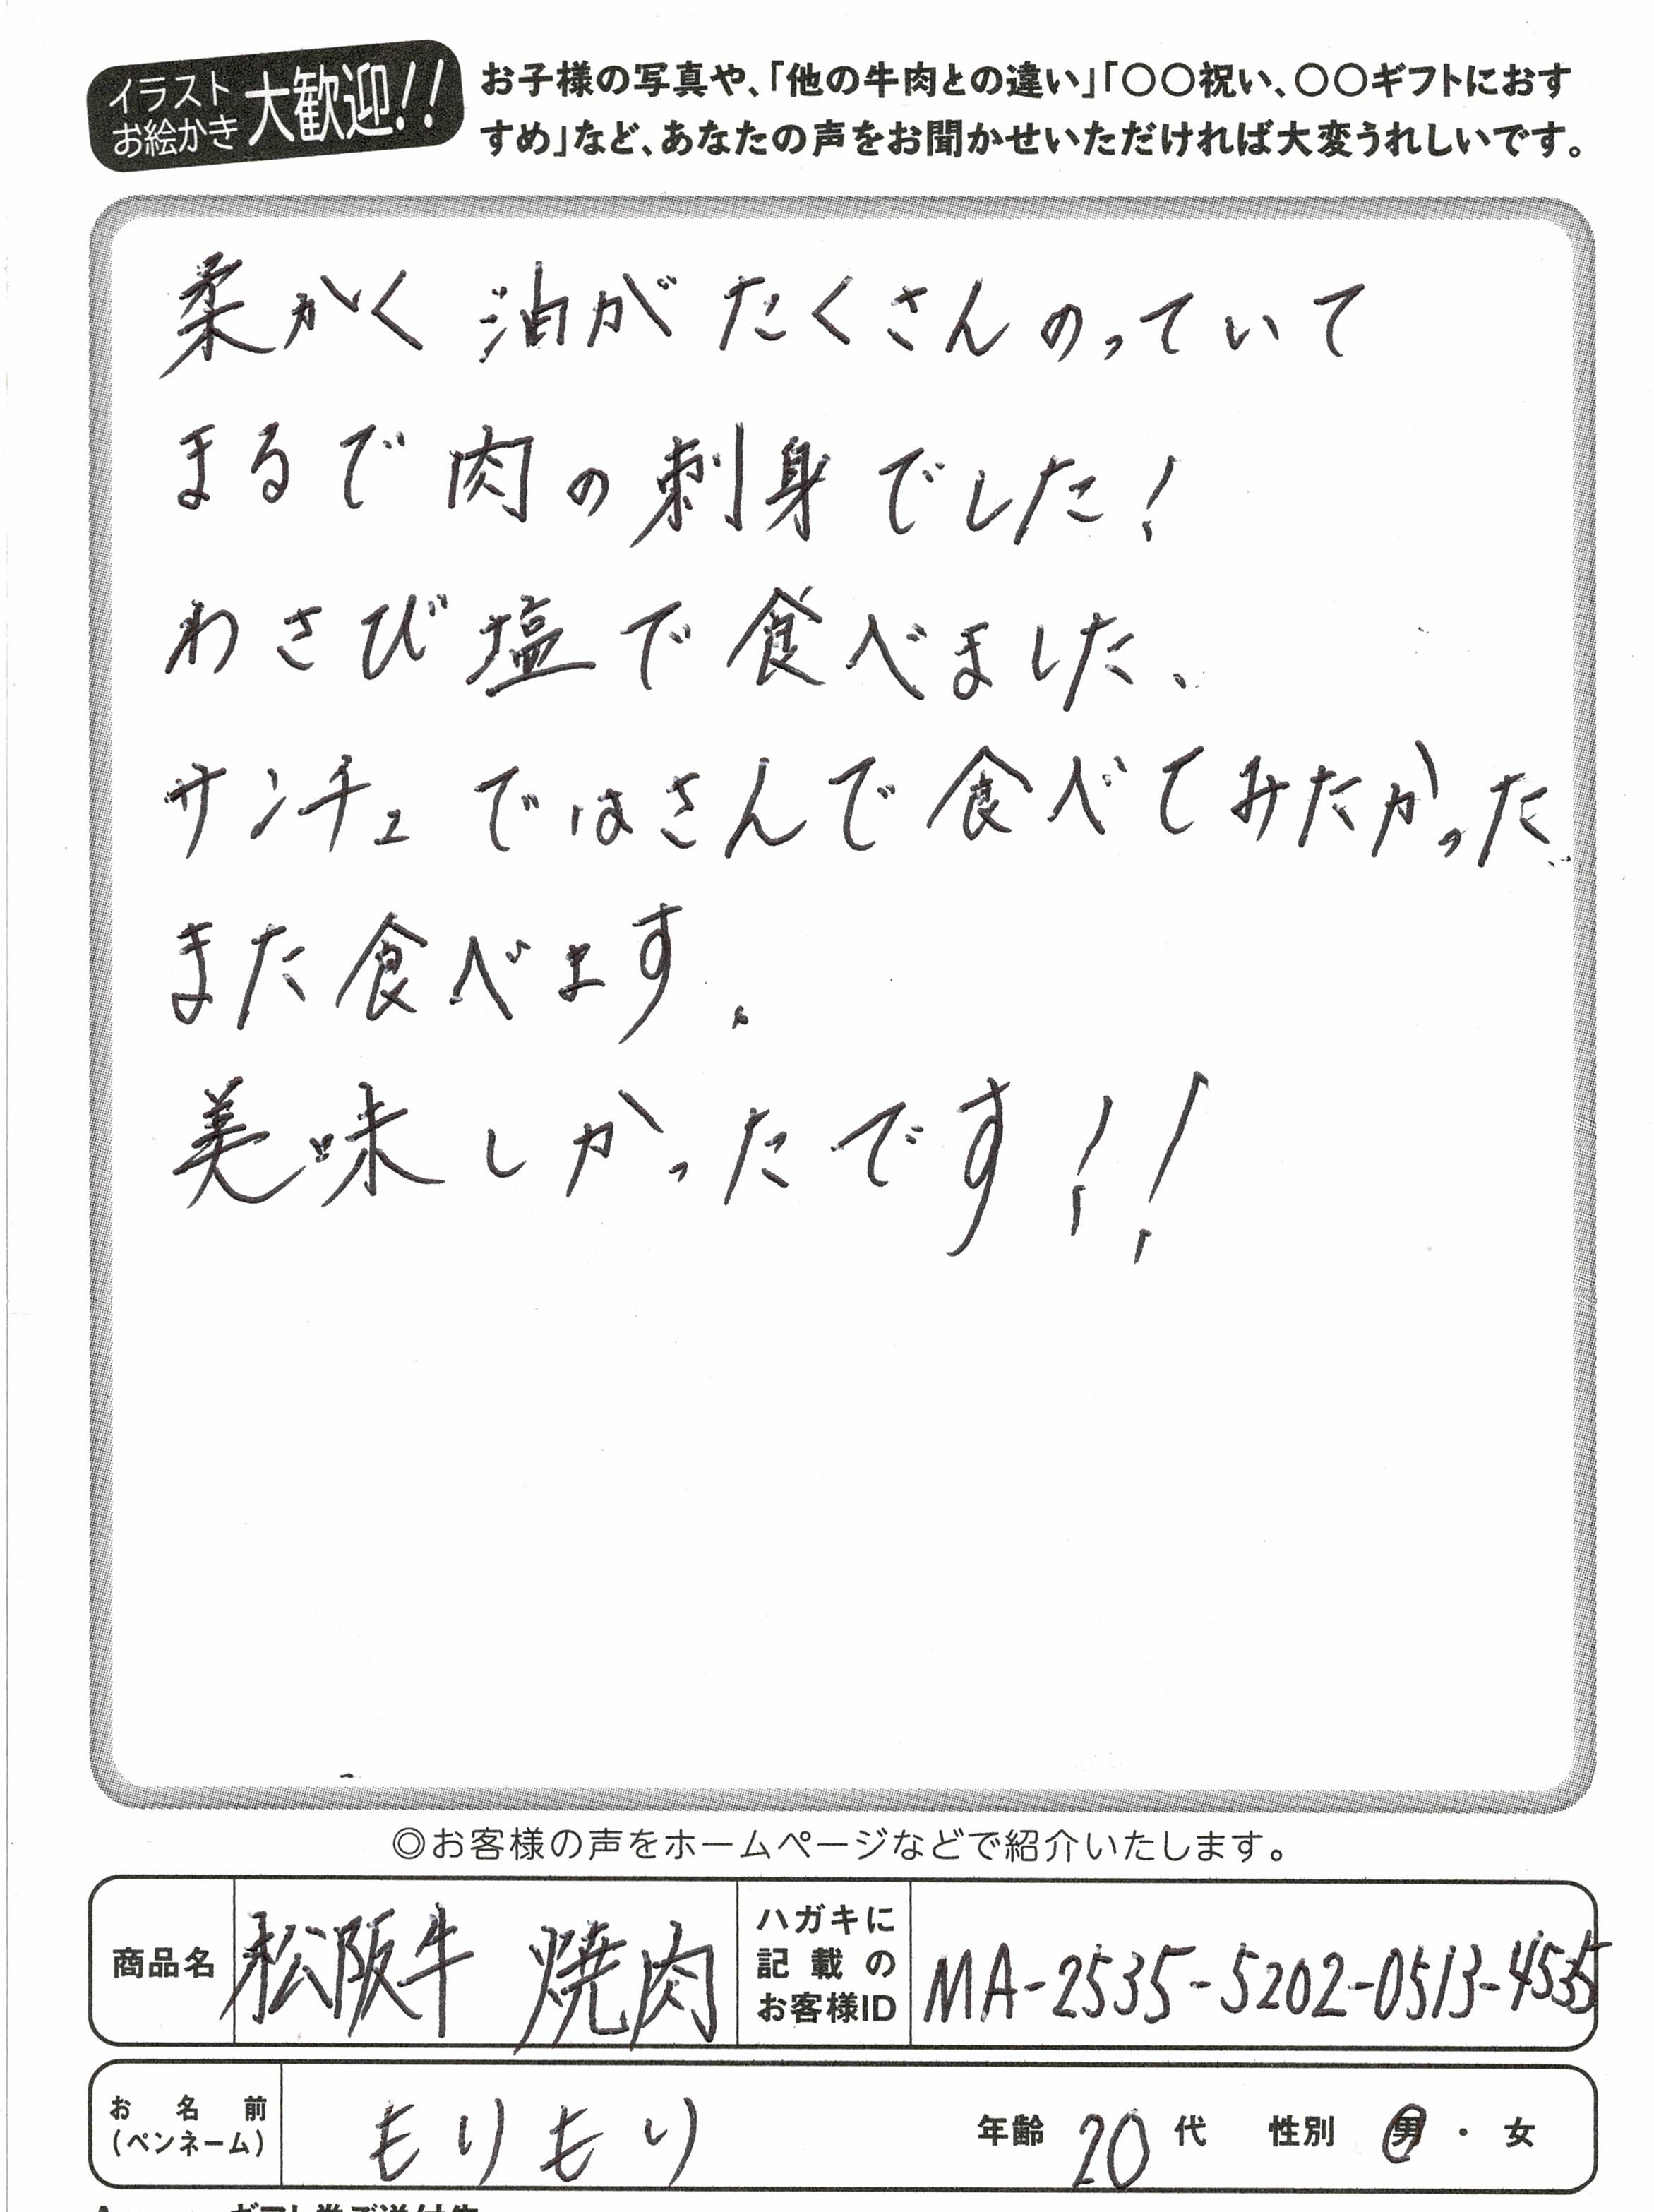 イラスト
お絵かき
大歓迎!!
お子様の写真や、「他の牛肉との違い」「〇〇祝い、〇〇ギフトにおす
すめ」など、あなたの声をお聞かせいただければ大変うれしいです。
柔かく 油が たくさんのっていて
まるで 肉の刺身でした!
わさび塩で食べました、
サンチュではさんで食べてみたかった、
また食べます.
美味しかったです!!
◎お客様の声をホームページなどで紹介いたします。
商品名
松阪牛 焼肉
ハガキに
記載の
お客様ID
MA-2535-5202-0513-4535
お名前
(ペンネーム)
もりもり
年齢 20 代 性別 男・女